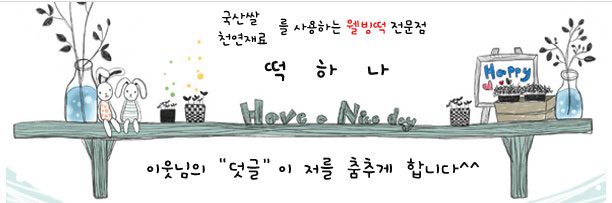 국산쌀
천연재료 를 사용하는 웰빙떡 전문점
떡 하 나
Happy
Have a Nice day
이웃님의 "덧글" 이 저를 춤추게 합니다^^